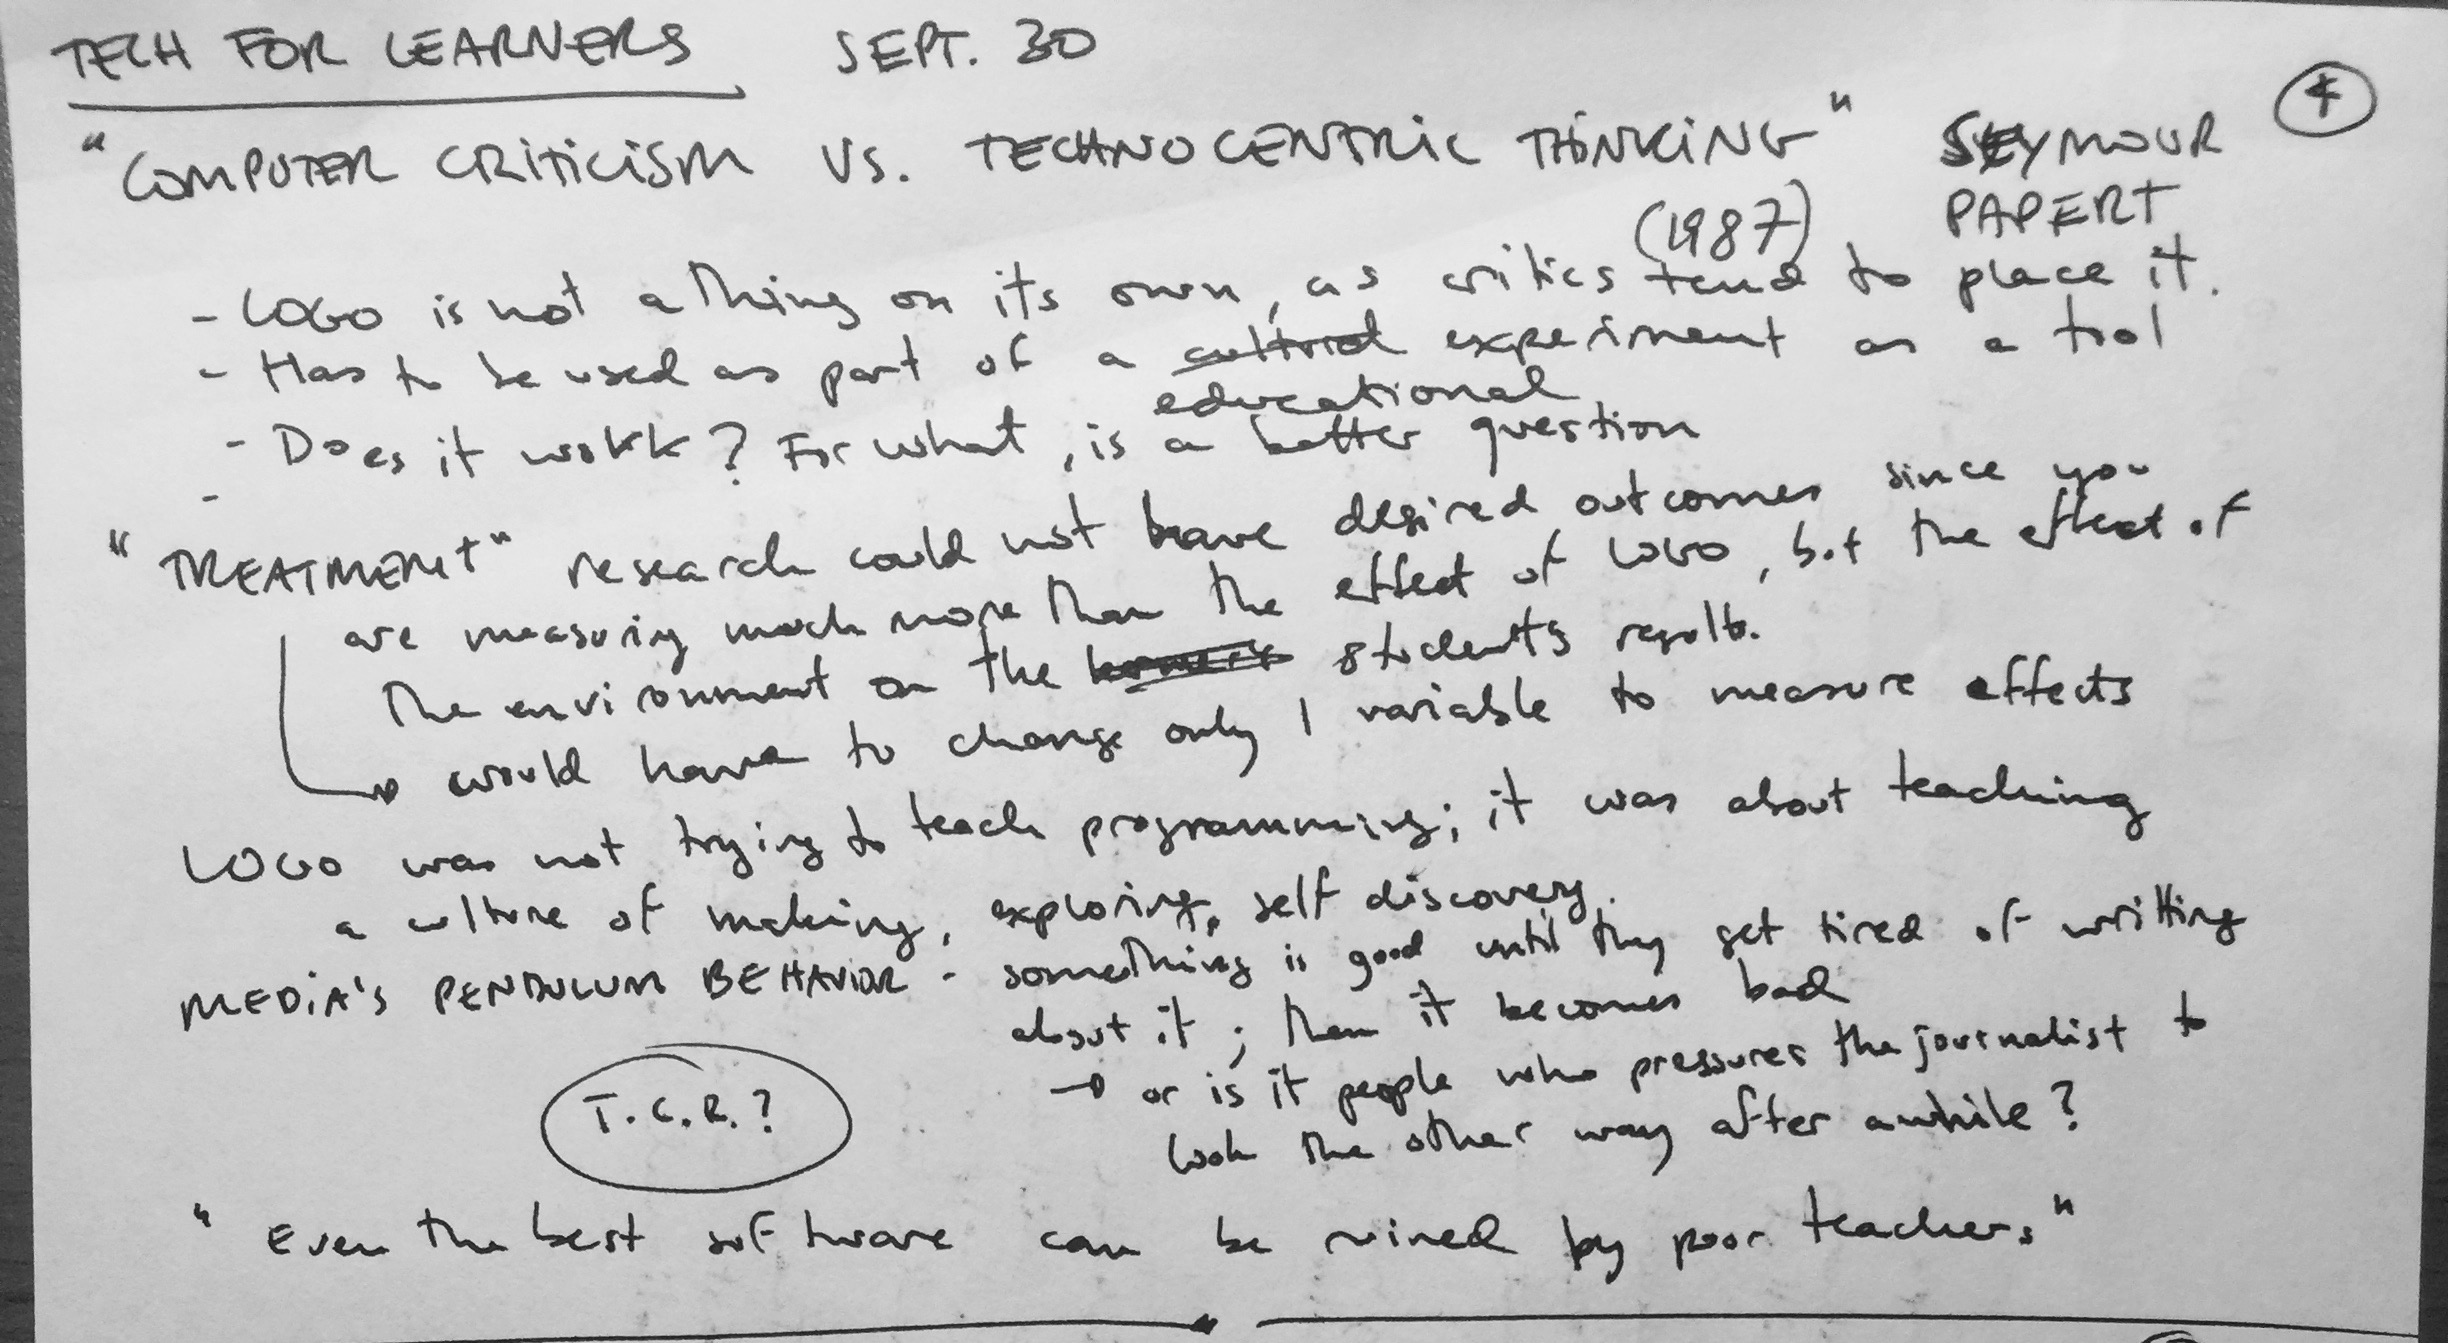 TECH FOR LEARNERS SEPT. 30
4
"COMPUTER CRITICISM VS. TECHNOCENTRIC THINKING" SEYMOUR
(1987) PAPERT
- LOGO is not a thing on its own, as critics tend to place it.
- Has to be used as part of a cultural experiment as a tool
educational
- Does it wokk? For what, is a better question
-
"TREATMENT" research could not have desired outcomes since you
are measuring much more than the effect of LOGO, but the effect of
the environment on the students results.
would have to change only 1 variable to measure effects
LOGO was not trying to teach programming; it was about teaching
a culture of making, exploring, self discovery.
MEDIA'S PENDULUM BEHAVIOR - something is good until they get tired of writting
about it; then it becomes bad
→ or is it people who pressures the journalist to
look the other way after awhile?
T.C.R.?
"Even the best software can be ruined by poor teachers"